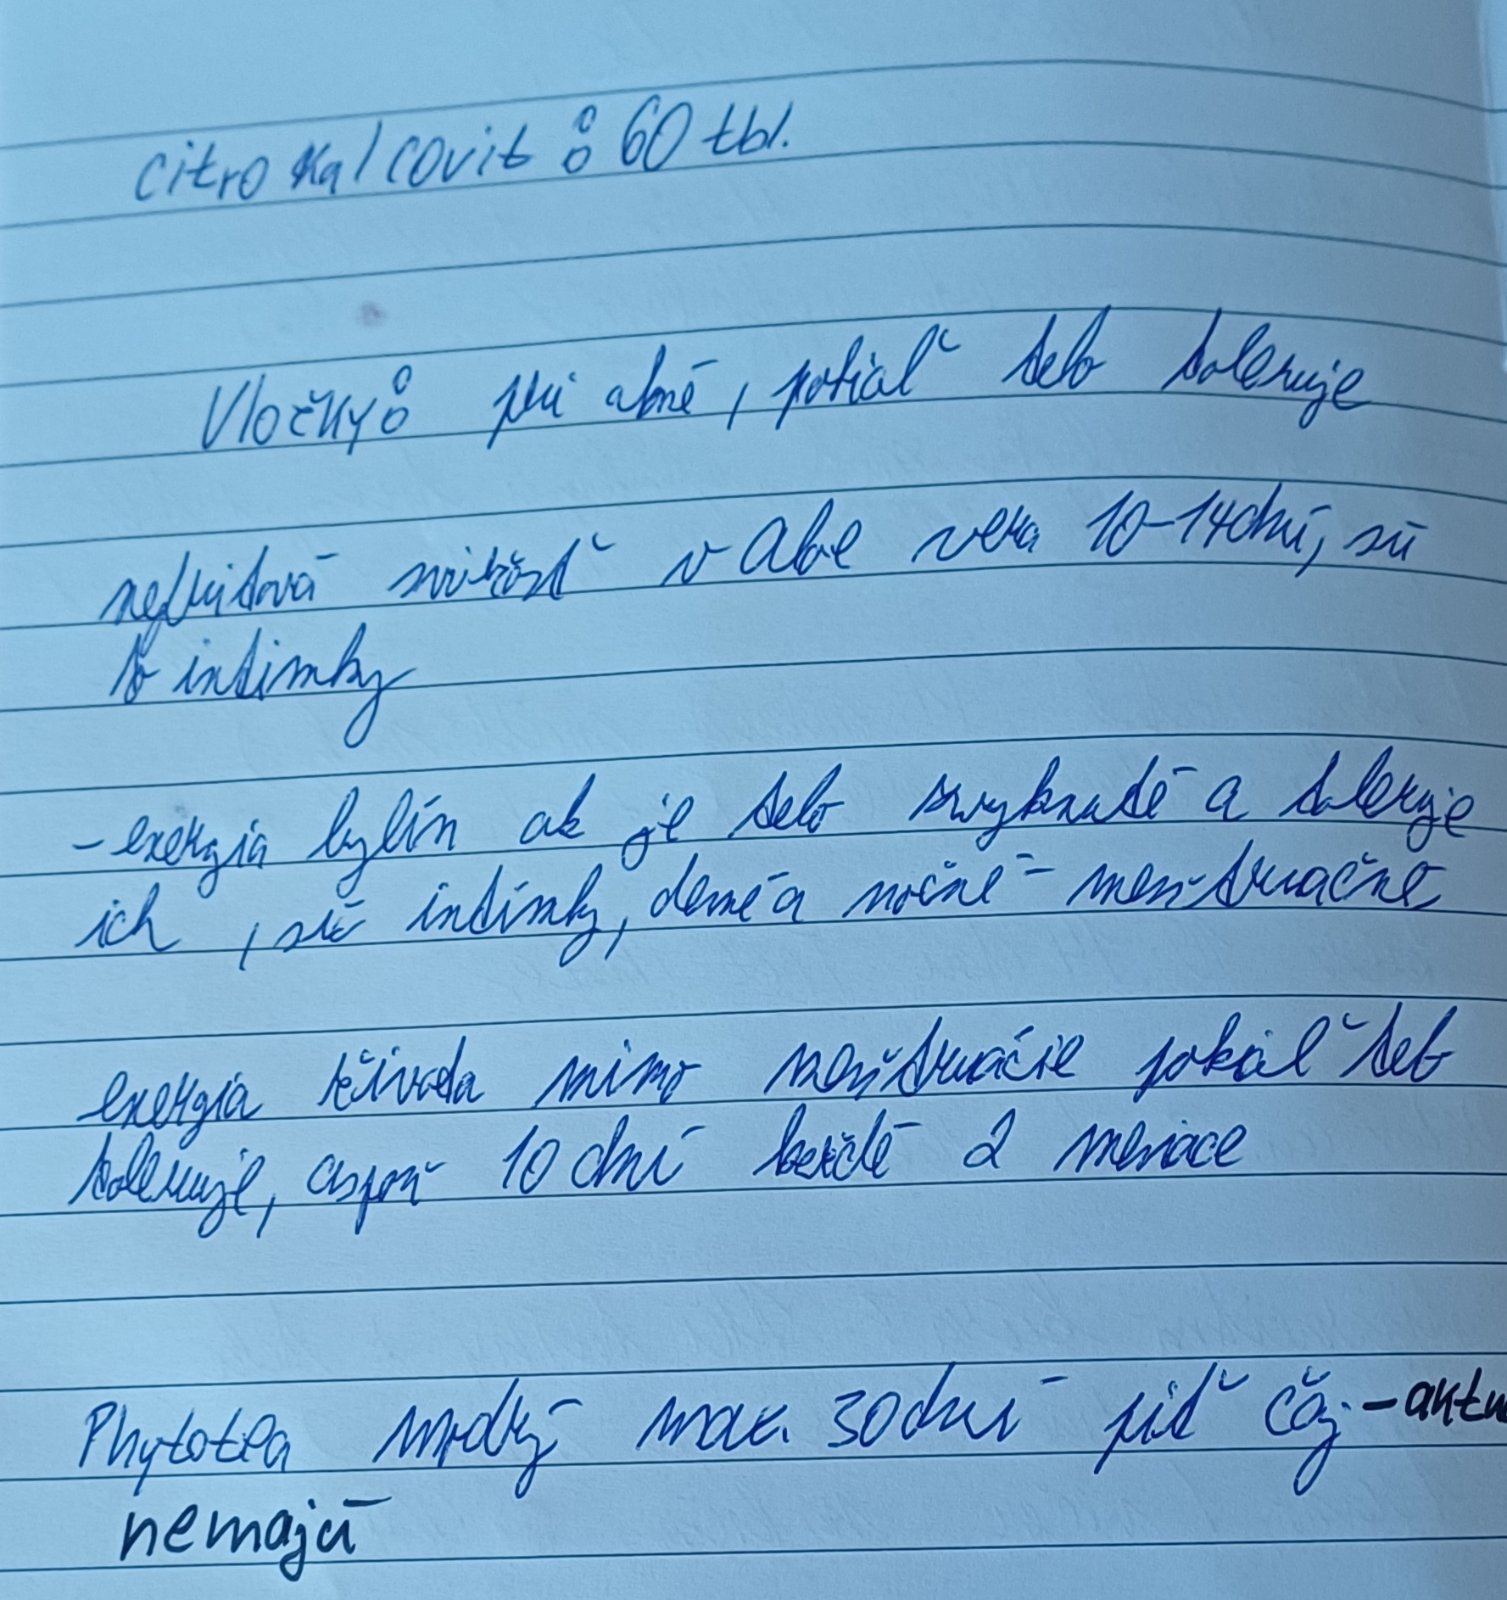 Citrokalcovit : 60 tbl.
Vločky: pri akné, pokiaľ telo toleruje
v Aloe vera 10-14dní, sú
to intimky
- energia bylín ak je telo zvyknuté a toleruje
ich, sú intimky, denné a nočné - menštruačné
energia života mimo menštruácie pokiaľ telo
toleruje, aspoň 10 dní každé 2 mesiace
Phytotea modrý max. 30 dní piť čaj - aktu
nemajú